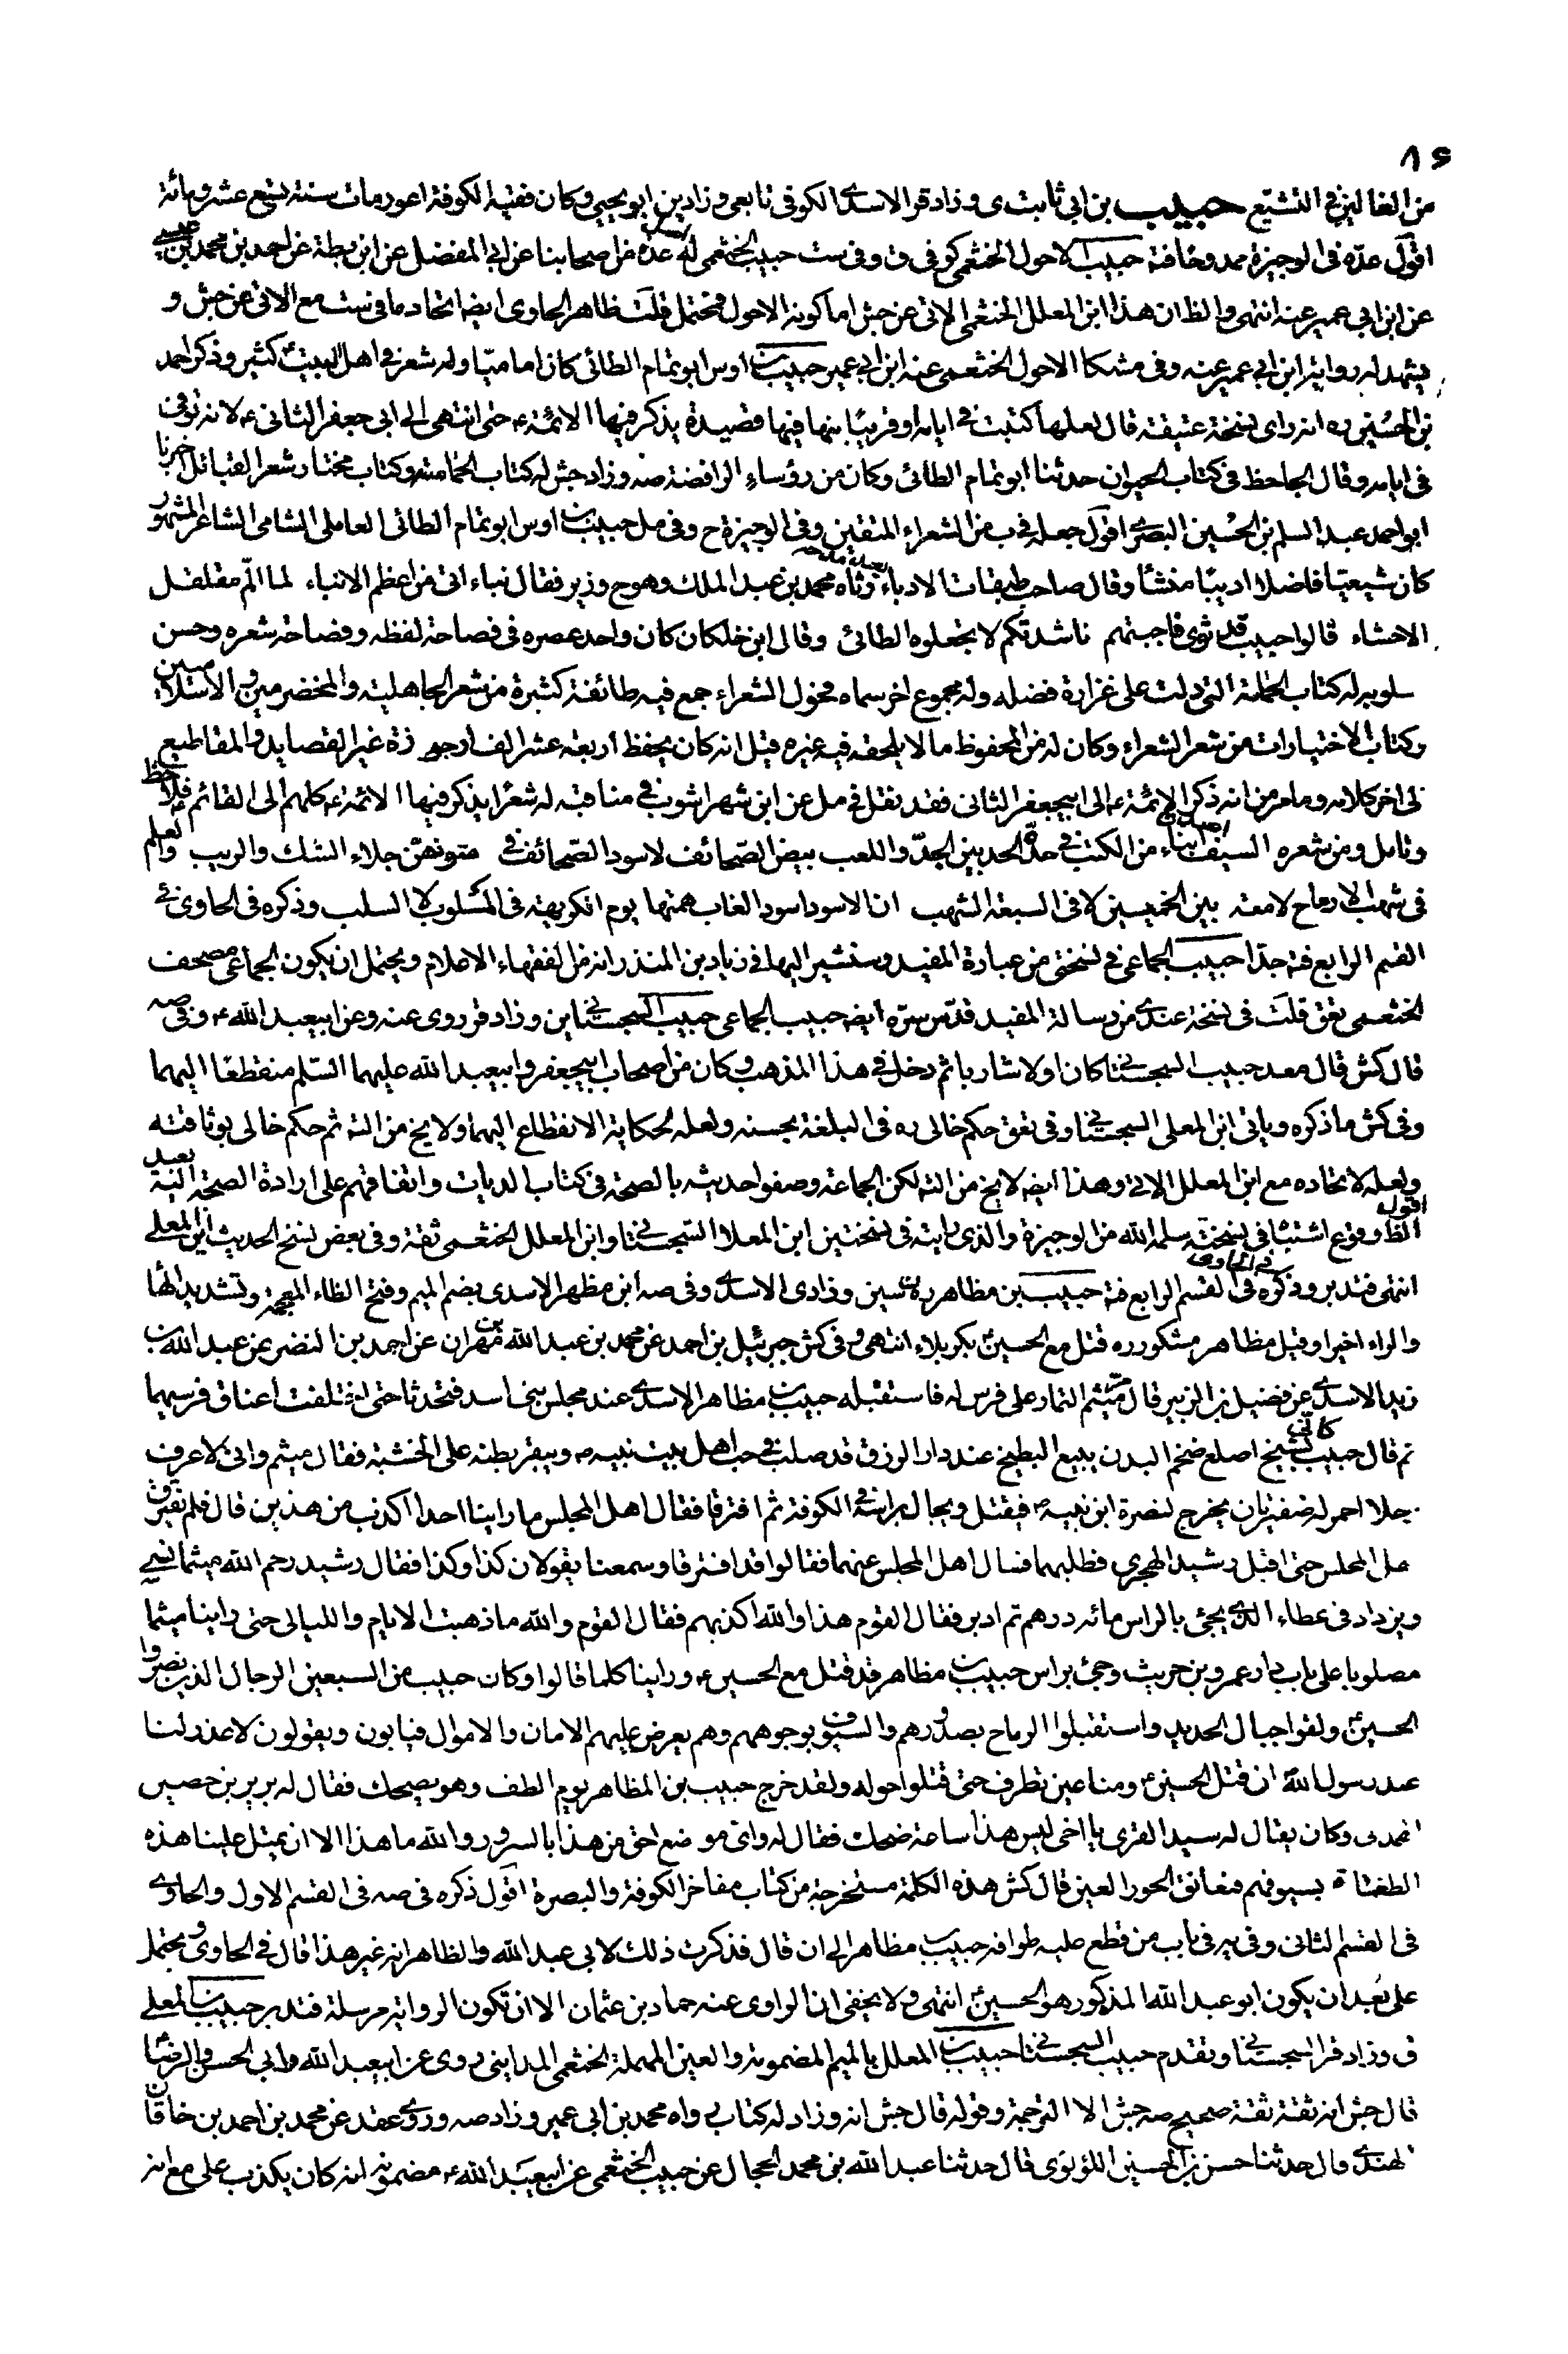 ٨٦
من الغالين في التشيّع حبيب بن ابي ثابت ى وزاد ق الاسدى الكوفى تابعى وزاد ين ابو يحيى وكان فقيه الكوفة اعور مات سنة تسع عشر ومائة
اقول عدّه فى الوجيزة مد وحافته حبيب الاحول الخثعمى كوفى ق وفى ست حبيب الخثعمى له اصل عدة من اصحابنا عن ابى المفضل عن ابن بطة عن احمد بن محمد بن عيسى
عن ابن ابى عمير عنه انتهى والظ ان هذا ابن المعلل الخثعمى الاتى عن جش اما كونه الاحول فمحتمل قلت ظاهر الحاوى ايضا اتحاد ما فى ست مع الاتى عن جش و
يشهد له رواية ابن ابى عمير عنه وفى مشكا الاحول الخثعمى عنه ابن ابى عمير حبيب بن اوس ابو تمام الطائى كان اماميّا وله شعر فى اهل البيت ع كثير وذكر احمد
بن الحسين ره انه راى نسخة عتيقة قال لعلها كتبت فى ايامه او قريبًا منها فيها قصيدة يذكر فيها الائمة ع حتى انتهى الى ابى جعفر الثانى ع لانه توفى
فى ايامه وقال الجاحظ فى كتاب الحيوان حدثنا ابو تمام الطائى وكان من رؤساء الرافضة صه وزاد جش له كتاب الحماسة وكتاب مختار شعر القبائل اخبرنا
ابو احمد عبد السلم بن الحسين البصرى اقول جعله فى ب من الشعراء المتقين وفى الوجيزة ح وفى مل حبيب بن اوس ابو تمام الطائى العاملى الشامى الشاعر المشهور
كان شيعيّا فاضلا اديبًا منشأ وقال صاحب طبقات الادباء رثاه محمد بن عبد الملك وهوح وزير فقال نباء اتى من اعظم الانباء لما المّ مقلقل
الاحشاء قالوا حبيب قد ثوى فاجبتهم ناشدتكم لا تجعلوه الطائى وقال ابن خلكان كان واحد عصره فى فصاحة لفظه وفصاحة شعره وحسن
سلوبه له كتاب الحماسة التى دلت على غزارة فضله وله مجموع اخر سماه فحول الشعراء جمع فيه طائفة كثيرة من شعر الجاهلية والمخضرمين والاسلاميين
وكتاب الاختيارات من شعر الشعراء وكان له من المحفوظ ما لا يلحقه فيه غيره قيل انه كان يحفظ اربعة عشر الف ارجوزة غير القصايد والمقاطيع
لى اخر كلامه وما مر من انه ذكر الائمة ع الى ابيجعفر الثانى فقد نقل فى مل عن ابن شهراشوب فى مناقبه له شعرًا يذكر فيها الائمة ع كلهم الى القائم ع فلاحظ
وتامل ومن شعره السيف اصدق انباء من الكتب فى حدّه الحد بين الجدّ واللعب بيض الصّفائح لا سود الصّحائف فى متونهنّ جلاء الشك والريب والعلم
فى شهب الارماح لامعة بين الخميسين لا فى السبعة الشهب ان الاسود اسود الغاب همتها يوم الكريهة فى المسلوب لا السلب وذكره فى الحاوى فى
القسم الرابع فتد جدا حبيب الجماعى فى نسختى من عبارة المفيد وسنشير اليها فى زياد بن المنذر انه من الفقهاء الاعلام ويحتمل ان يكون الجماعى مصحف
الخثعمى تعق قلت فى نسخة عندى من رسالة المفيد قدّس سرّه ايضا حبيب الجماعى حبيب السجستانى ين وزاد قر روى عنه وعن ابيعبد الله ع وفى صه
قال كش قال معد حبيب السجستانى كان اولا شاريا ثم دخل فى هذا المذهب وكان من اصحاب ابيجعفر وابيعبد الله عليهما السّلم منقطعًا اليهما
وفى كش ما ذكره وياتى ابن المعلى السجستانى وفى تعق حكم خالى ره فى البلغة بحسنه ولعله لحكاية الانقطاع اليهما ولا يخ من التم ثم حكم خالى بوثاقته
ولعله لاتحاده مع ابن المعلل الاتى وهذا ايضا لا يخ من التم لكن الجماعة وصفوا حديثه بالصحة فى كتاب الديات واتفاقهم على ارادة الصحة اليه بعيد
اقول الظ وقوع اشتباه فى نسخته سلمه الله من الوجيزة والذى رايته فى نسختين ابن المعلا السجستانى وابن المعلل الخثعمى ثقة وفى بعض نسخ الحديث ابن المعلى
انتهى فتدبر وذكره فى الحاوى فى القسم الرابع فتد حبيب بن مظاهر ى ن سين وزاد ى الاسدى وفى صه ابن مظهر الاسدى بضم الميم وفتح الظاء المعجمة وتشديد الهاء
والراء اخيرا وقيل مظاهر مشكور ره قتل مع الحسين ع بكربلاء انتهى وفى كش جبرئيل بن احمد عن محمد بن عبد الله بن مهران عن احمد بن النضر عن عبد الله بن
زيد الاسدى عن فضيل بن الزبير قال مرّ ميثم التمار على فرس له فاستقبله حبيب بن مظاهر الاسدى عند مجلس بنى اسد فتحدثا حتى اختلفت اعناق فرسيهما
ثم قال حبيب لكانّى بشيخ اصلع ضخم البدن يبيع البطيخ عند دار الرزق قد صلب فى حب اهل بيت نبيه ص ويبقر بطنه على الخشبة فقال ميثم وانى لاعرف
رجلا احمر له ضفيرتان يخرج لنصرة ابن نبيه ص فيقتل ويجال براسه فى الكوفة ثم افترقا فقال اهل المجلس ما راينا احدا اكذب من هذين قال فلم يتفرق
هل المجلس حتى اقبل رشيد الهجرى فطلبهما فسال اهل المجلس عنهما فقالوا قد افترقا وسمعنا يقولان كذا وكذا فقال رشيد رحم الله ميثما نسى
ويزداد فى عطاء الذى يجئ بالراس مائه درهم ثم ادبر فقال القوم هذا والله اكذبهم فقال القوم والله ما ذهبت الايام والليالى حتى راينا ميثما
مصلوبا على باب دار عمرو بن حريث وجئ براس حبيب بن مظاهر قد قتل مع الحسين ع وراينا كلما قالوا وكان حبيب من السبعين الرجال الذين نصروا
الحسين ع ولقوا جبال الحديد واستقبلوا الرماح بصدورهم والسيوف بوجوههم وهم يعرض عليهم الامان والاموال فيابون ويقولون لا عذر لنا
عند رسول الله ان قتل الحسين ع ومنا عين تطرف حتى قتلوا حوله ولقد خرج حبيب بن المظاهر يوم الطف وهو يضحك فقال له برير بن حصين
الهمدانى وكان يقال له سيد القرى يا اخى ليس هذا ساعة ضحك فقال له واى موضع احق من هذا بالسرور والله ما هذا الا ان يميل علينا هذه
الطغاة بسيوفهم فنعانق الحور العين قال كش هذه الكلمة مستخرجة من كتاب مفاخر الكوفة والبصرة اقول ذكره فى صه فى القسم الاول والحاوى
فى القسم الثانى وفى يب فى باب من قطع عليه طوافه حبيب بن مظاهر الى ان قال فذكرت ذلك لابى عبد الله والظاهر انه غير هذا قال فى الحاوى ويحتمل
على بُعد ان يكون ابو عبد الله المذكور هو الحسين ع انتهى ولا يخفى ان الراوى عنه حماد بن عثمان الا ان تكون الرواية مرسلة فتدبر حبيب بن المعلى
ق وزاد قر السجستانى وتقدم حبيب السجستانى حبيب بن المعلل بالميم المضمومة والعين المهملة الخثعمى المداينى روى عن ابيعبد الله وابى الحسن والرضا ع
قال جش انه ثقة ثقة صحيح صه جش الا الترجمة وقوله قال جش انه وزاد له كتاب رواه محمد بن ابى عمير وزاد صه وروى عقد عن محمد بن احمد بن خاقان
النهدى قال حدثنا حسن بن الحسين اللؤلؤى قال حدثنا عبد الله بن محمد الحجال عن حبيب الخثعمى عن ابيعبد الله ع مضمونه انه كان يكذب على مع انه